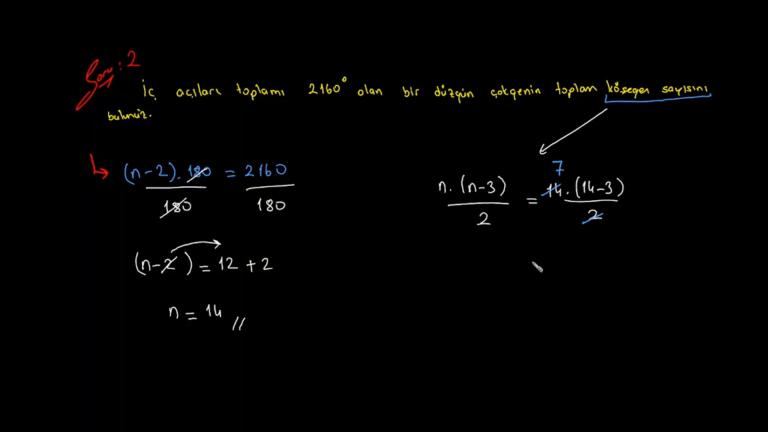 Soru: 2
İç açıları toplamı 2160° olan bir düzgün çokgenin toplam köşegen sayısını
bulunuz.
(n-2).180 / 180 = 2160 / 180
(n-2) = 12 + 2
n = 14 //
n.(n-3) / 2 = 7 14.(14-3) / 2